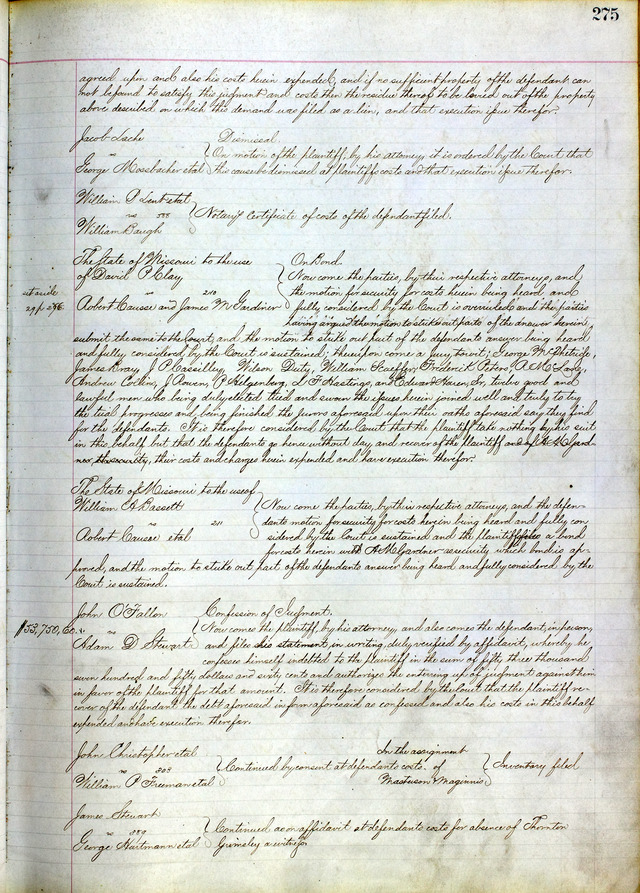 275
agreed upon and also his costs herein expended, and if no sufficient property of the defendant can
not be found to satisfy this judgment and costs then the residue thereof to be levied out of the property
above described on which this demand was filed as a lien, and that execution issue therefor.
Jacob Dismissal.
vs On motion of the plaintiff, by his attorney it is ordered by the Court that
George Mossbacher etal this cause be dismissed at plaintiffs costs and that execution issue therefor.
William P Lent etal
vs 388 Notary's Certificate of costs of the defendant filed.
William Baugh
The State of Missouri to the use On Bond
of David P Clay Now come the parties, by their respective attorneys, and
set aside vs 210 the motion for security for costs herein being heard and
29 p 286. Robert Causse and James M Gardiner fully considered by the Court is overruled and the parties
having argued the motion to strike out parts of the answer herein
submit the same to the Court, and the motion to strike out part of the defendants answer being heard
and fully considered, by the Court is sustained; thereupon come a jury, to wit; George W
James Gray, J P Cassilley, Wilson Duty, William Kaeffer, Frederick Peters, A M Lane,
Andrew Collins, J Bowen, P Helgenberg, L F Hastings, and Edward Haren, Sr, twelve good and
lawful men who being duly elected tried and sworn the issues herein joined well and truly to try
the trial progresses and being finished the jurors aforesaid upon their oaths aforesaid say they find
for the defendants. It is therefore considered by the Court that the plaintiff take nothing by his suit
in this behalf but that the defendants go hence without day, and recover of the plaintiff and of A M Gard
ner, the security, their costs and charges herein expended and have execution therefor.
The State of Missouri to the use of
William A Bassett Now come the parties, by their respective attorneys, and the defen-
vs 211 dants motion for security for costs herein being heard and fully con-
Robert Causse etal sidered by the Court is sustained and the plaintiff files a bond
for costs herein with A M Gardner as security which bond is ap-
proved, and the motion to strike out part of the defendants answer being heard and fully considered by the
Court is sustained.
John O'Fallon Confession of Judgment.
$53,750,60. vs Now comes the plaintiff, by his attorney, and also comes the defendant, in person,
Adam D Stewart and files his statement in writing, duly verified by affidavit, whereby he
confesses himself indebted to the plaintiff in the sum of fifty three thousand
seven hundred and fifty dollars and sixty cents and authorizes the entering up of judgment against him
in favor of the plaintiff for that amount. It is therefore considered by the Court that the plaintiff re-
cover of the defendant the debt aforesaid in form aforesaid as confessed and also his costs in this behalf
expended and have execution therefor.
John Christopher etal In the assignment
vs 303 Continued by consent at defendants costs. of Inventory filed
William P Freeman etal Masterson & Maginnis
James Stewart
vs 389 Continued as on affidavit at defendants costs for absence of Thornton
George Hartmann etal Grimsley a witness